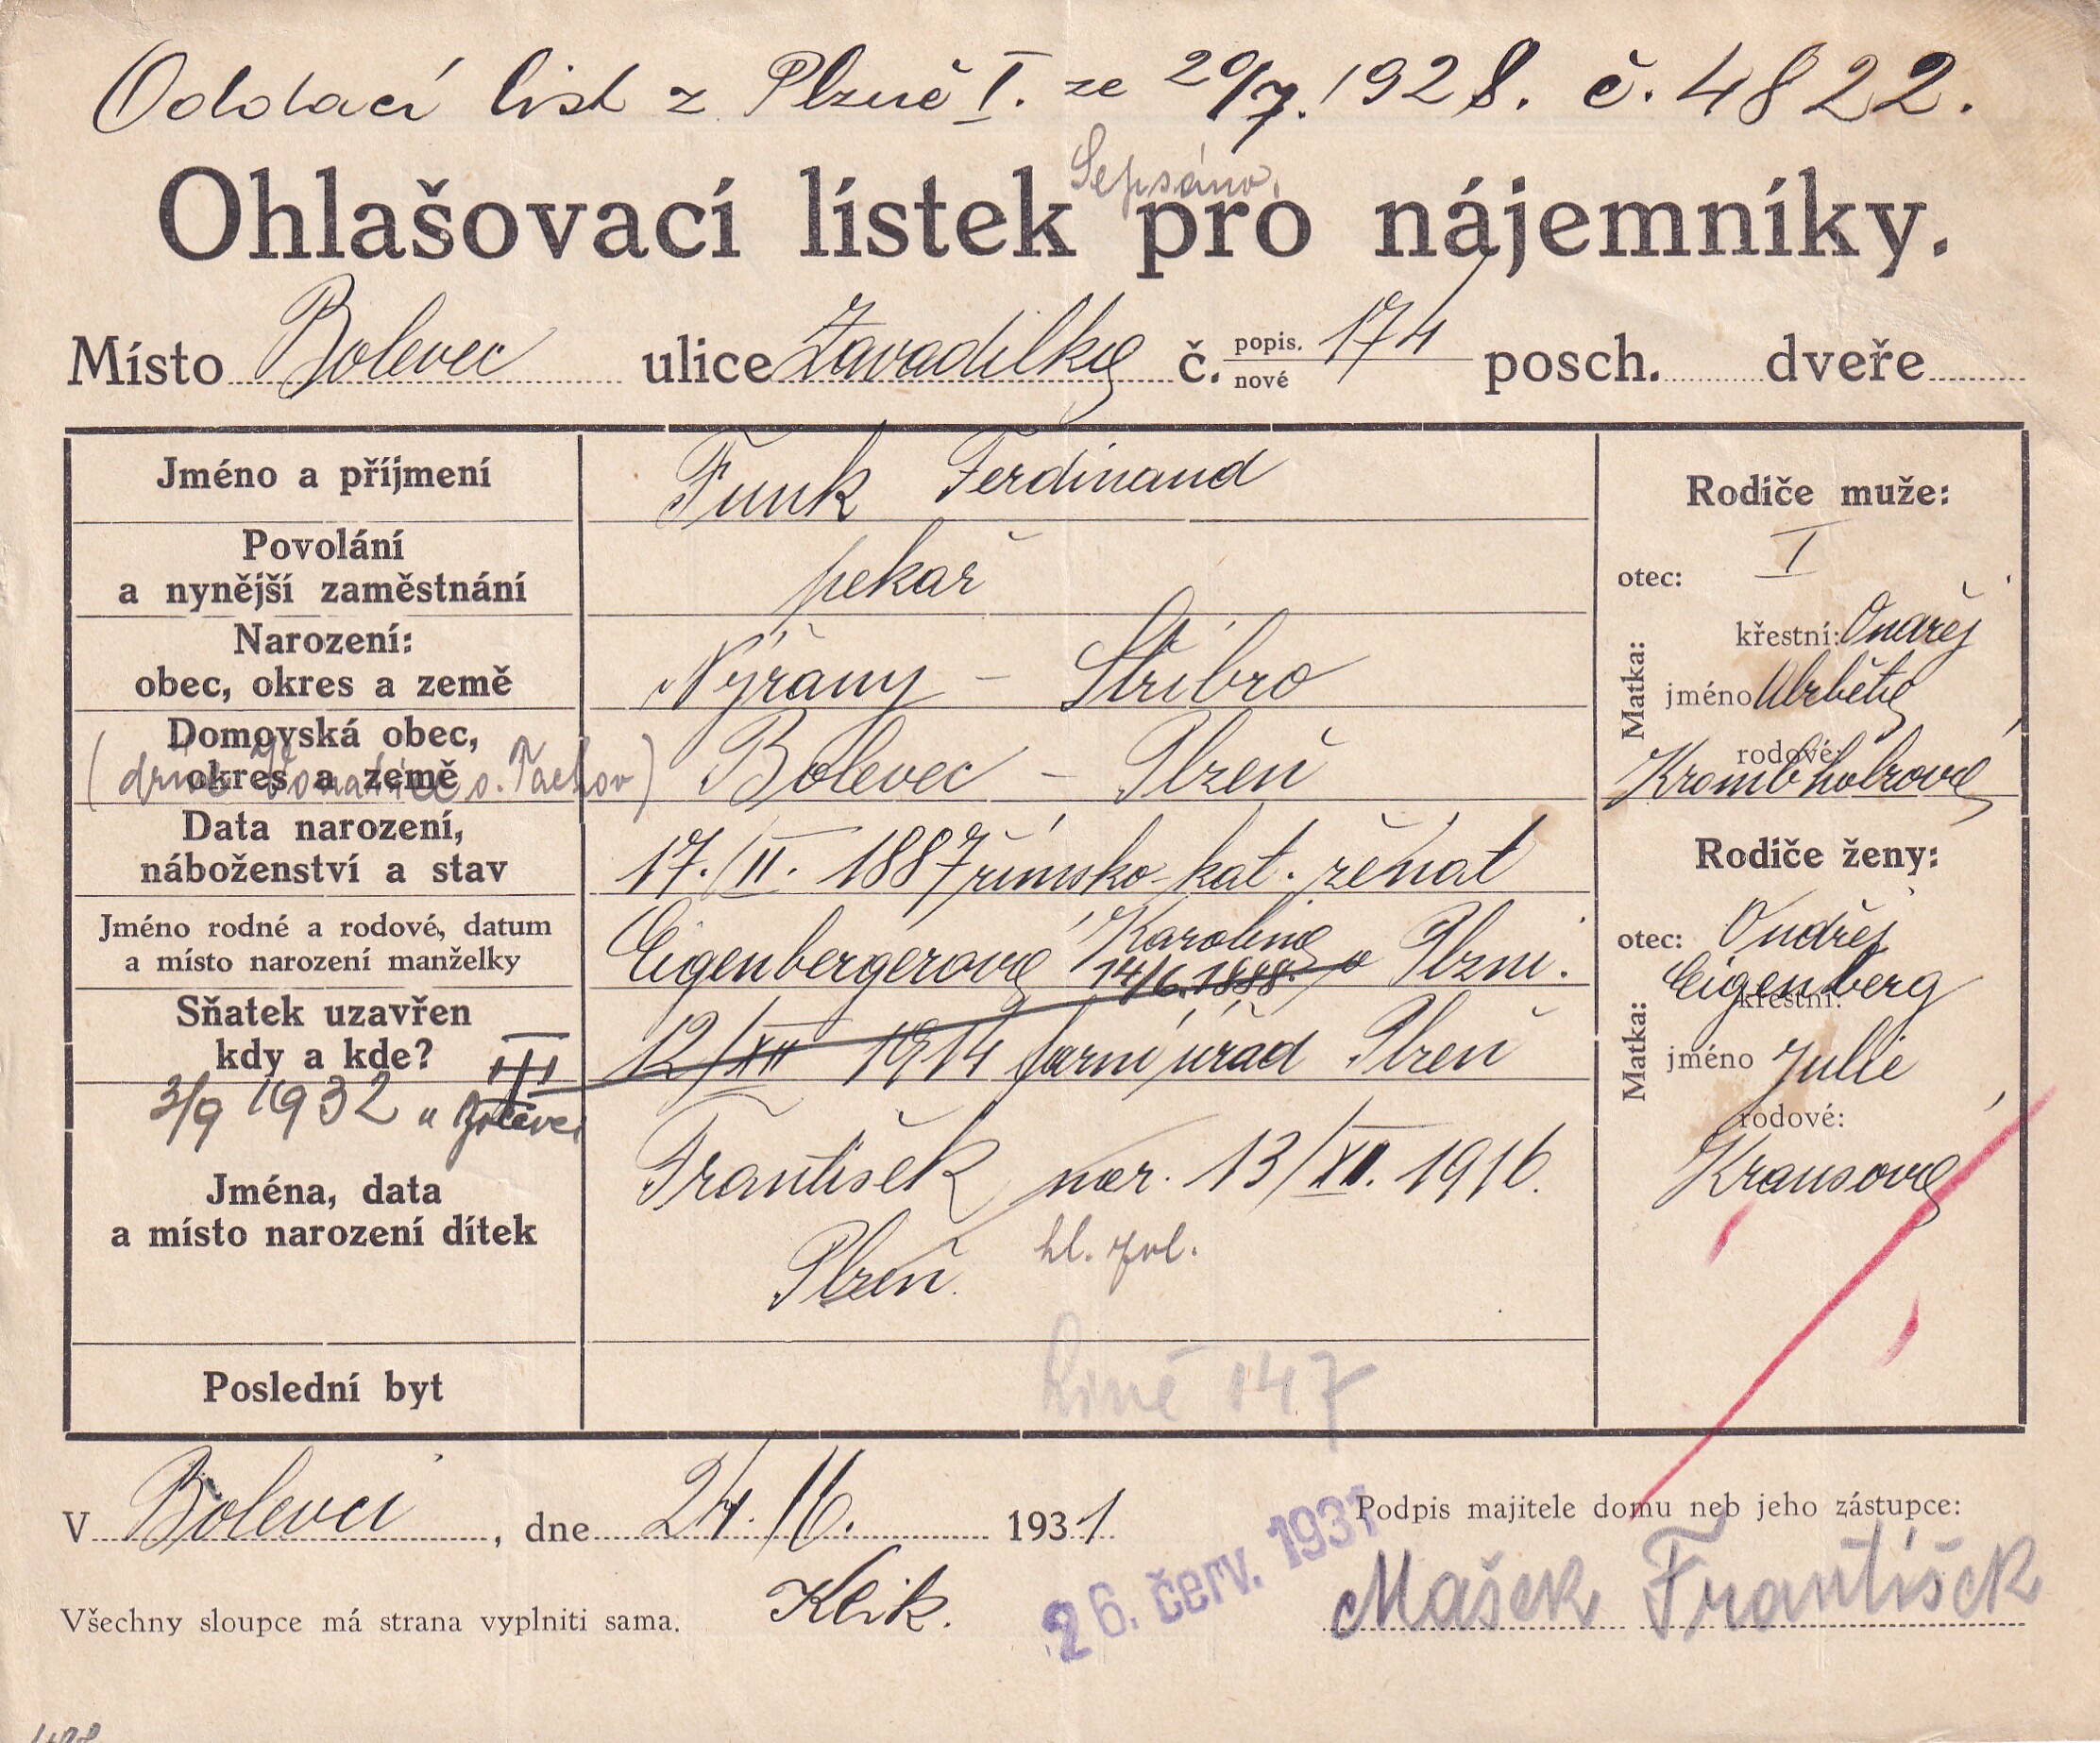 Oddací list z Plzně I. ze 20/7. 1928. č. 4822.
Sepsáno.
Ohlašovací lístek pro nájemníky.
Místo Bolevec ulice Zavadilky č. popis. nové 174 posch. dveře
Jméno a příjmení Funk Ferdinand
Povolání
a nynější zaměstnání pekař
Narození:
obec, okres a země Nýřany - Stříbro
Domovská obec,
okres a země Bolevec - Plzeň
o. Tachov)
Data narození,
náboženství a stav 17./II. 1887 římsko-kat. ženat
Jméno rodné a rodové, datum
a místo narození manželky Eigenbergerová Karolina 14/6. 1888. v Plzni.
Sňatek uzavřen
kdy a kde? 12/XII 1914 farní úřad Plzeň
III
3/9 1932 u Bolevci
Jména, data
a místo narození dítek František nar. 13/XII. 1916.
Plzeň. hl. zvl.
Poslední byt Líně 147
Rodiče muže:
otec: I
Matka:
křestní: Ondřej
jméno Alžběta
rodové:
Krombholzová
Rodiče ženy:
otec: Ondřej
Eigenberg
Matka:
křestní:
jméno Julie
rodové:
Krausová
V Bolevci, dne 24./6. 1931.
26. červ. 1931
Podpis majitele domu neb jeho zástupce:
Mašek František
Všechny sloupce má strana vyplniti sama. Klik.